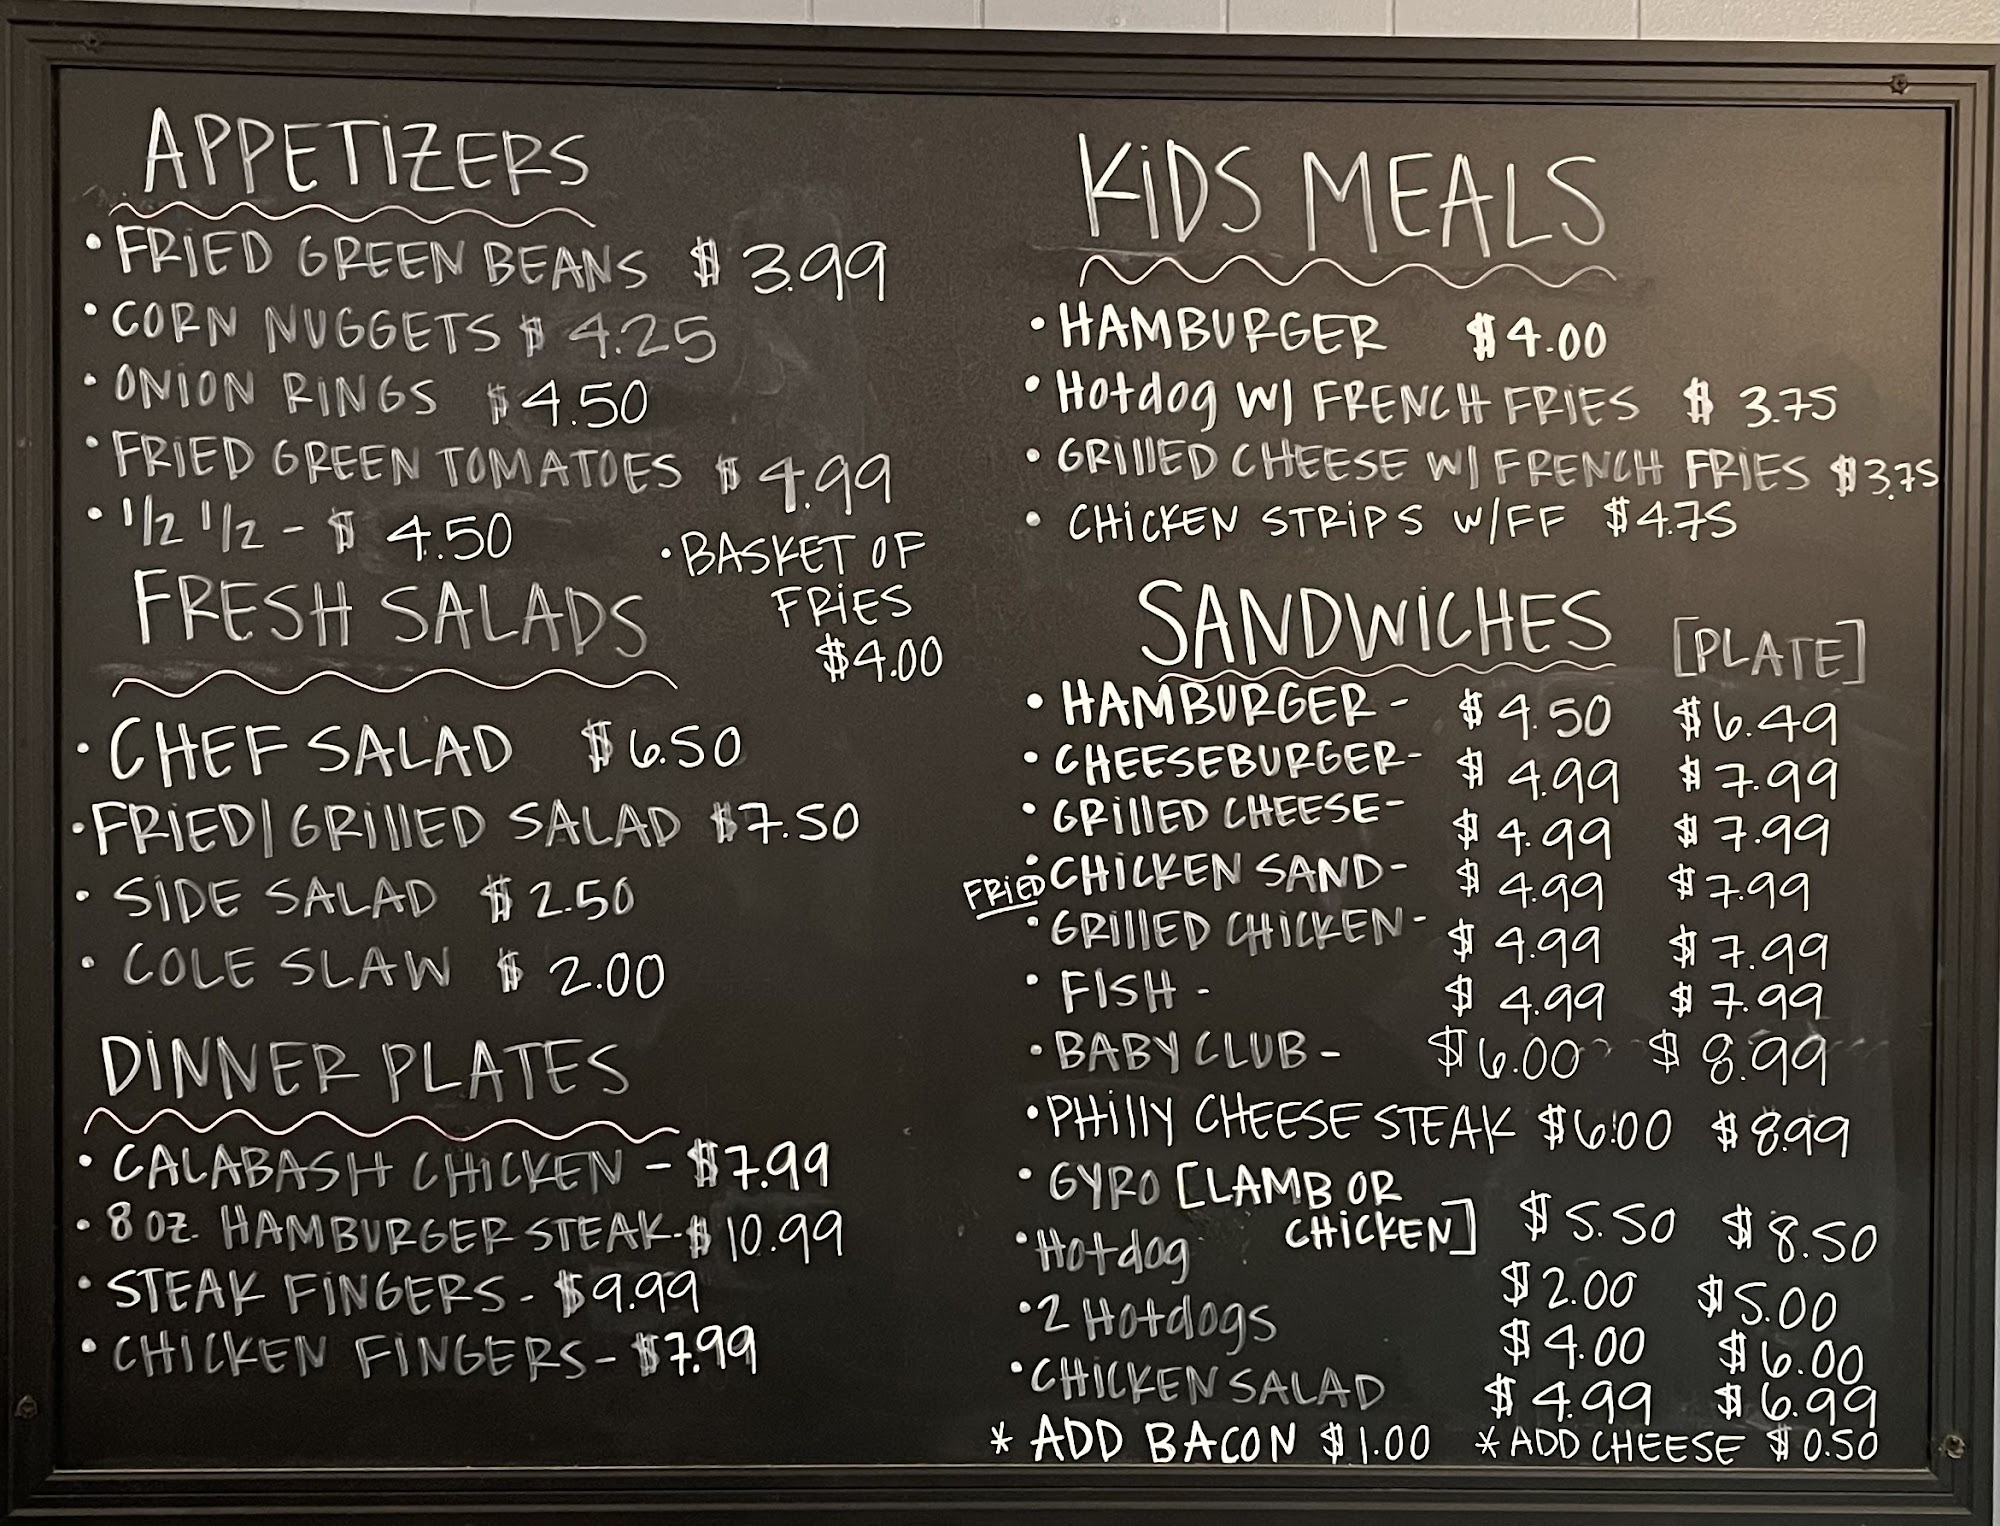 APPETIZERS
• FRIED GREEN BEANS $ 3.99
• CORN NUGGETS $ 4.25
• ONION RINGS $4.50
• FRIED GREEN TOMATOES $ 4.99
• 1/2 1/2 - $ 4.50
• BASKET OF
FRIES
$4.00
FRESH SALADS
• CHEF SALAD $6.50
• FRIED/GRILLED SALAD $7.50
• SIDE SALAD $2.50
• COLE SLAW $ 2.00
DINNER PLATES
• CALABASH CHICKEN - $7.99
• 8 OZ. HAMBURGER STEAK - $10.99
• STEAK FINGERS - $9.99
• CHICKEN FINGERS - $7.99
KIDS MEALS
• HAMBURGER $4.00
• Hotdog W/ FRENCH FRIES $ 3.75
• GRILLED CHEESE W/ FRENCH FRIES $3.75
• CHICKEN STRIPS W/FF $4.75
SANDWICHES [PLATE]
• HAMBURGER - $4.50 $6.49
• CHEESEBURGER - $4.99 $7.99
• GRILLED CHEESE - $4.99 $7.99
• FRIED CHICKEN SAND - $4.99 $7.99
• GRILLED CHICKEN - $4.99 $7.99
• FISH - $4.99 $7.99
• BABY CLUB - $6.00 $8.99
• PHILLY CHEESE STEAK $6.00 $8.99
• GYRO [LAMB OR
CHICKEN] $5.50 $8.50
• Hotdog $2.00 $5.00
• 2 Hotdogs $4.00 $6.00
• CHICKEN SALAD $4.99 $6.99
* ADD BACON $1.00 * ADD CHEESE $0.50